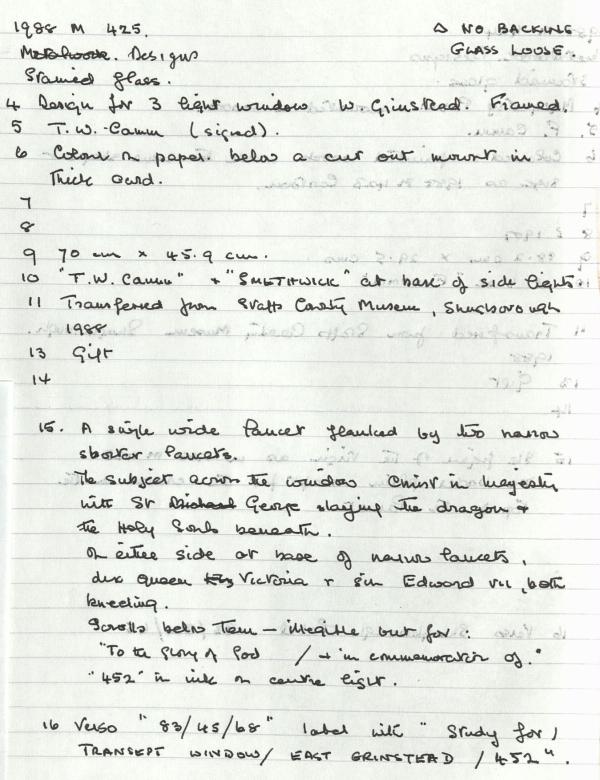 1988 M 425.
△ NO BACKING
GLASS LOOSE.
Metalwork. Designs
Stained Glass.
4 Design for 3 light window W. Grinstead. Framed.
5 T.W. Camm (signed).
6 Colour on paper. below a cut out mount in
thick card.
7
8
9 70 cm x 45.9 cm.
10 "T.W. Camm" + "SMETHWICK" at base of side lights
11 Transferred from Staffs County Museum, Shugborough
1988
13 Gift
14
15. A single wide lancet flanked by two narrow
shorter lancets.
The subject across the window Christ in Majesty
with St Michael George slaying the dragon +
the Holy Souls beneath.
On either side at base of narrow lancets,
dex Queen Victoria + sin Edward VII, both
kneeling.
Scrolls below them - illegible but for:
"To the Glory of God / + in commemoration of."
"452" in ink on centre light.
16 Verso "83/45/68" label with "Study for /
TRANSEPT WINDOW/ EAST GRINSTEAD / 452".